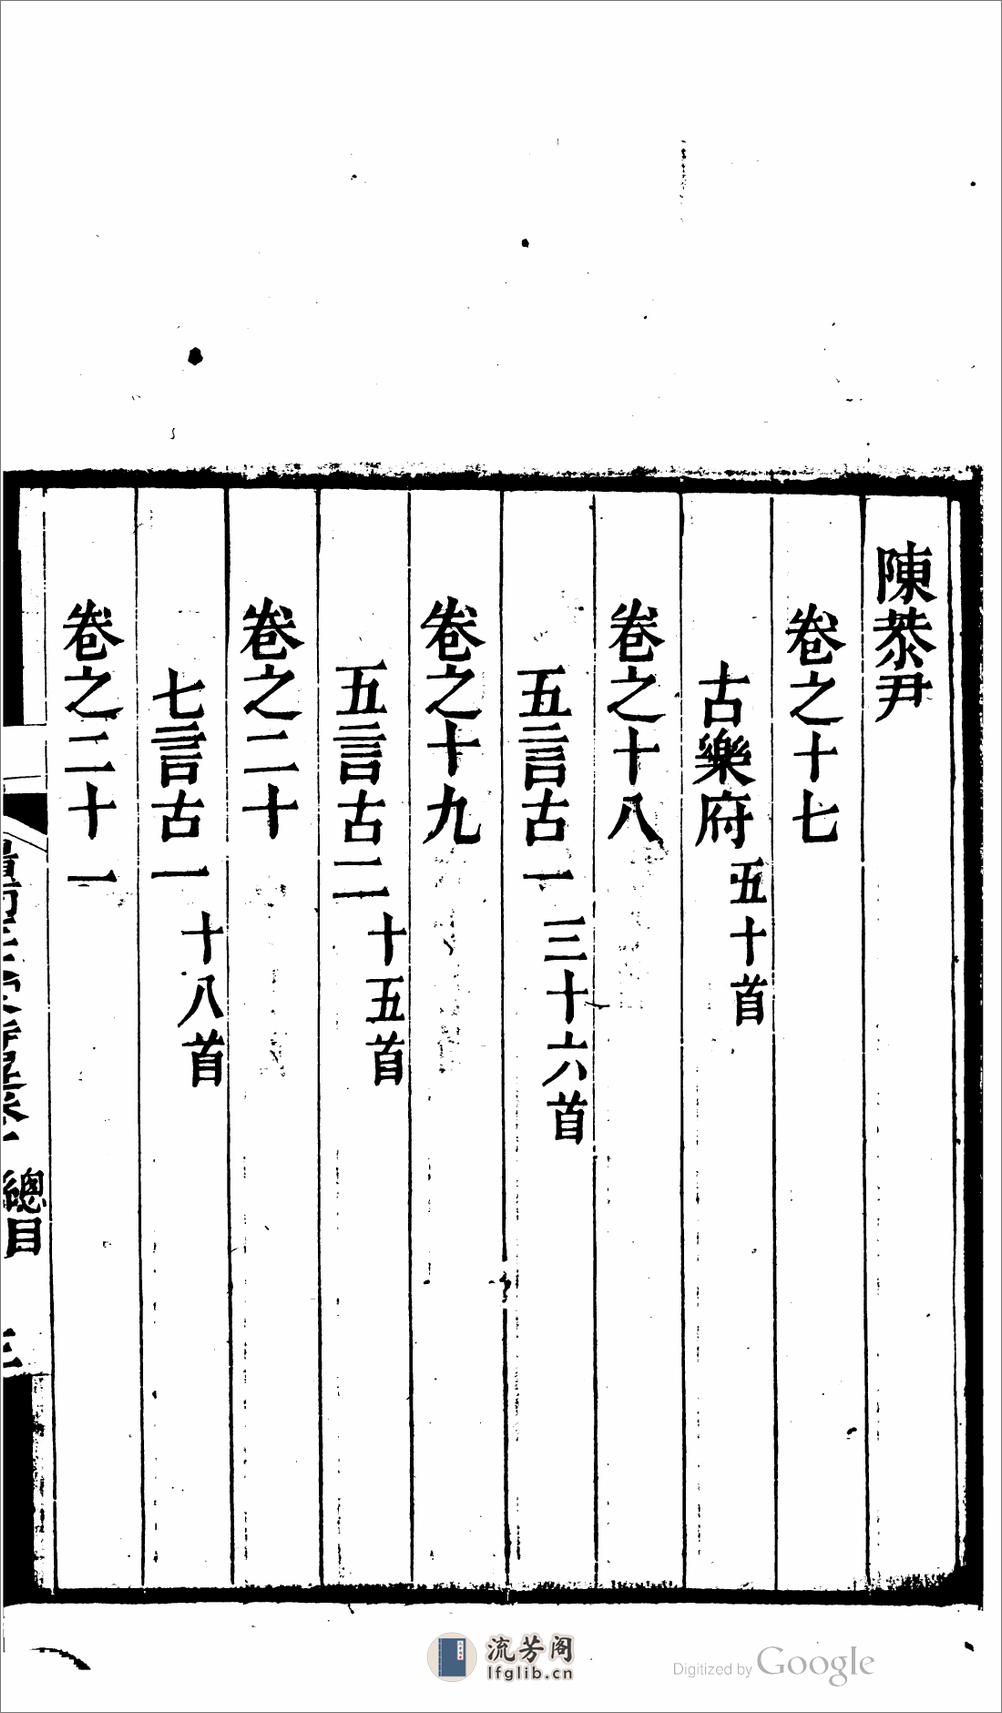 陳恭尹
卷之十七
古樂府五十首
卷之十八
五言古一三十六首
卷之十九
五言古二十五首
卷之二十
七言古一十八首
卷之二十一
總目
流芳阁
lfglib.cn
Digitized by Google